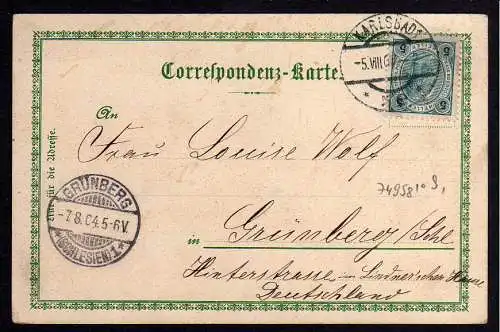 KARLSBAD
-5.VIII.04
5 5
5 5
Correspondenz-Karte
An
Nur für die Adresse.
Frau Louise Wolf
GRÜNBERG
-7.8.04.5-6V.
*(SCHLESIEN)1.*
74958
in Grünberg/Schl
Hinterstrasse im Lindner'schen Hause
Deutschland